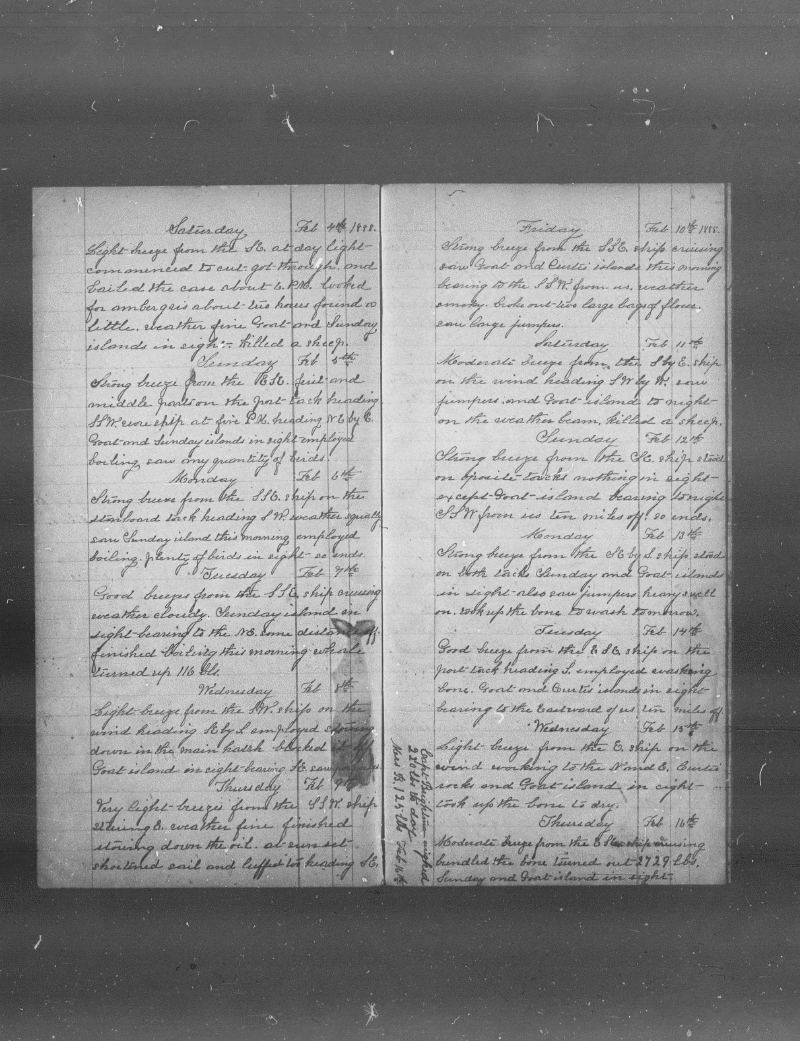 Saturday Feb 4th 1888.
Light breeze from the SE. at day light
commenced to cut got through and
bailed the case about 6 P.M. looked
for ambergris about two hours found a
little. weather fine Goat and Sunday
islands in sight. Killed a sheep.
Sunday Feb 5th
Strong breeze from the ESE. first and
middle parts on the port tack heading
SSW. wore ship at five P.M. heading NE by E.
Goat and Sunday islands in sight employed
boiling saw any quantity of birds.
Monday Feb 6th
Strong breeze from the SSE. ship on the
starboard tack heading SW. weather squally
saw Sunday island this morning employed
boiling. plenty of birds in sight so ends.
Tuesday Feb 7th
Good breezes from the SSE. ship cruising
weather cloudy. Sunday island in
sight bearing to the NE. some distance off.
finished boiling this morning whale
turned up 116 bls.
Wednesday Feb 8th
Light breeze from the SW. ship on the
wind heading by S. employed stowing
down in the main hatch blocked it off
Goat island in sight bearing SE. saw
Thursday Feb 9th
Very light breezes from the SSW. ship
steering E. weather fine finished
stowing down the oil. at sun set
shortened sail and luffed too heading SE.
Capt Brightman weighed
226 lbs this day
Mrs B. 125 lbs Feb 16th
Friday Feb 10th 1888.
Strong breeze from the SSE. ship cruising
saw Goat and Curtis islands this morning
bearing to the SSW. from us. weather
smoky. broke out two large bags of flour.
saw large jumpers.
Saturday Feb 11th
Moderate breeze from the S by E. ship
on the wind heading SW by W. saw
jumpers and Goat island to night
on the weather beam. Killed a sheep.
Sunday Feb 12th
Strong breeze from the SE. ship stood
on oposite tacks nothing in sight
except Goat island bearing to night
SSW from us ten miles off. so ends.
Monday Feb 13th
Strong breeze from the SE by S. ship stood
on both tacks Sunday and Goat islands
in sight also saw jumpers heavy swell
on. took up the bone to wash tomorow.
Tuesday Feb 14th
Good breeze from the ESE ship on the
port tack heading S. employed washing
bone. Goat and Curtis islands in sight
bearing to the Eastward of us ten miles off.
Wednesday Feb 15th
Light breeze from the E. ship on the
wind working to the N and E. Curtis
rocks and Goat island in sight
took up the bone to dry.
Thursday Feb 16th
Moderate breeze from the ship cruising
bundled the bone turned out 2729 lbs.
Sunday and Goat island in sight.